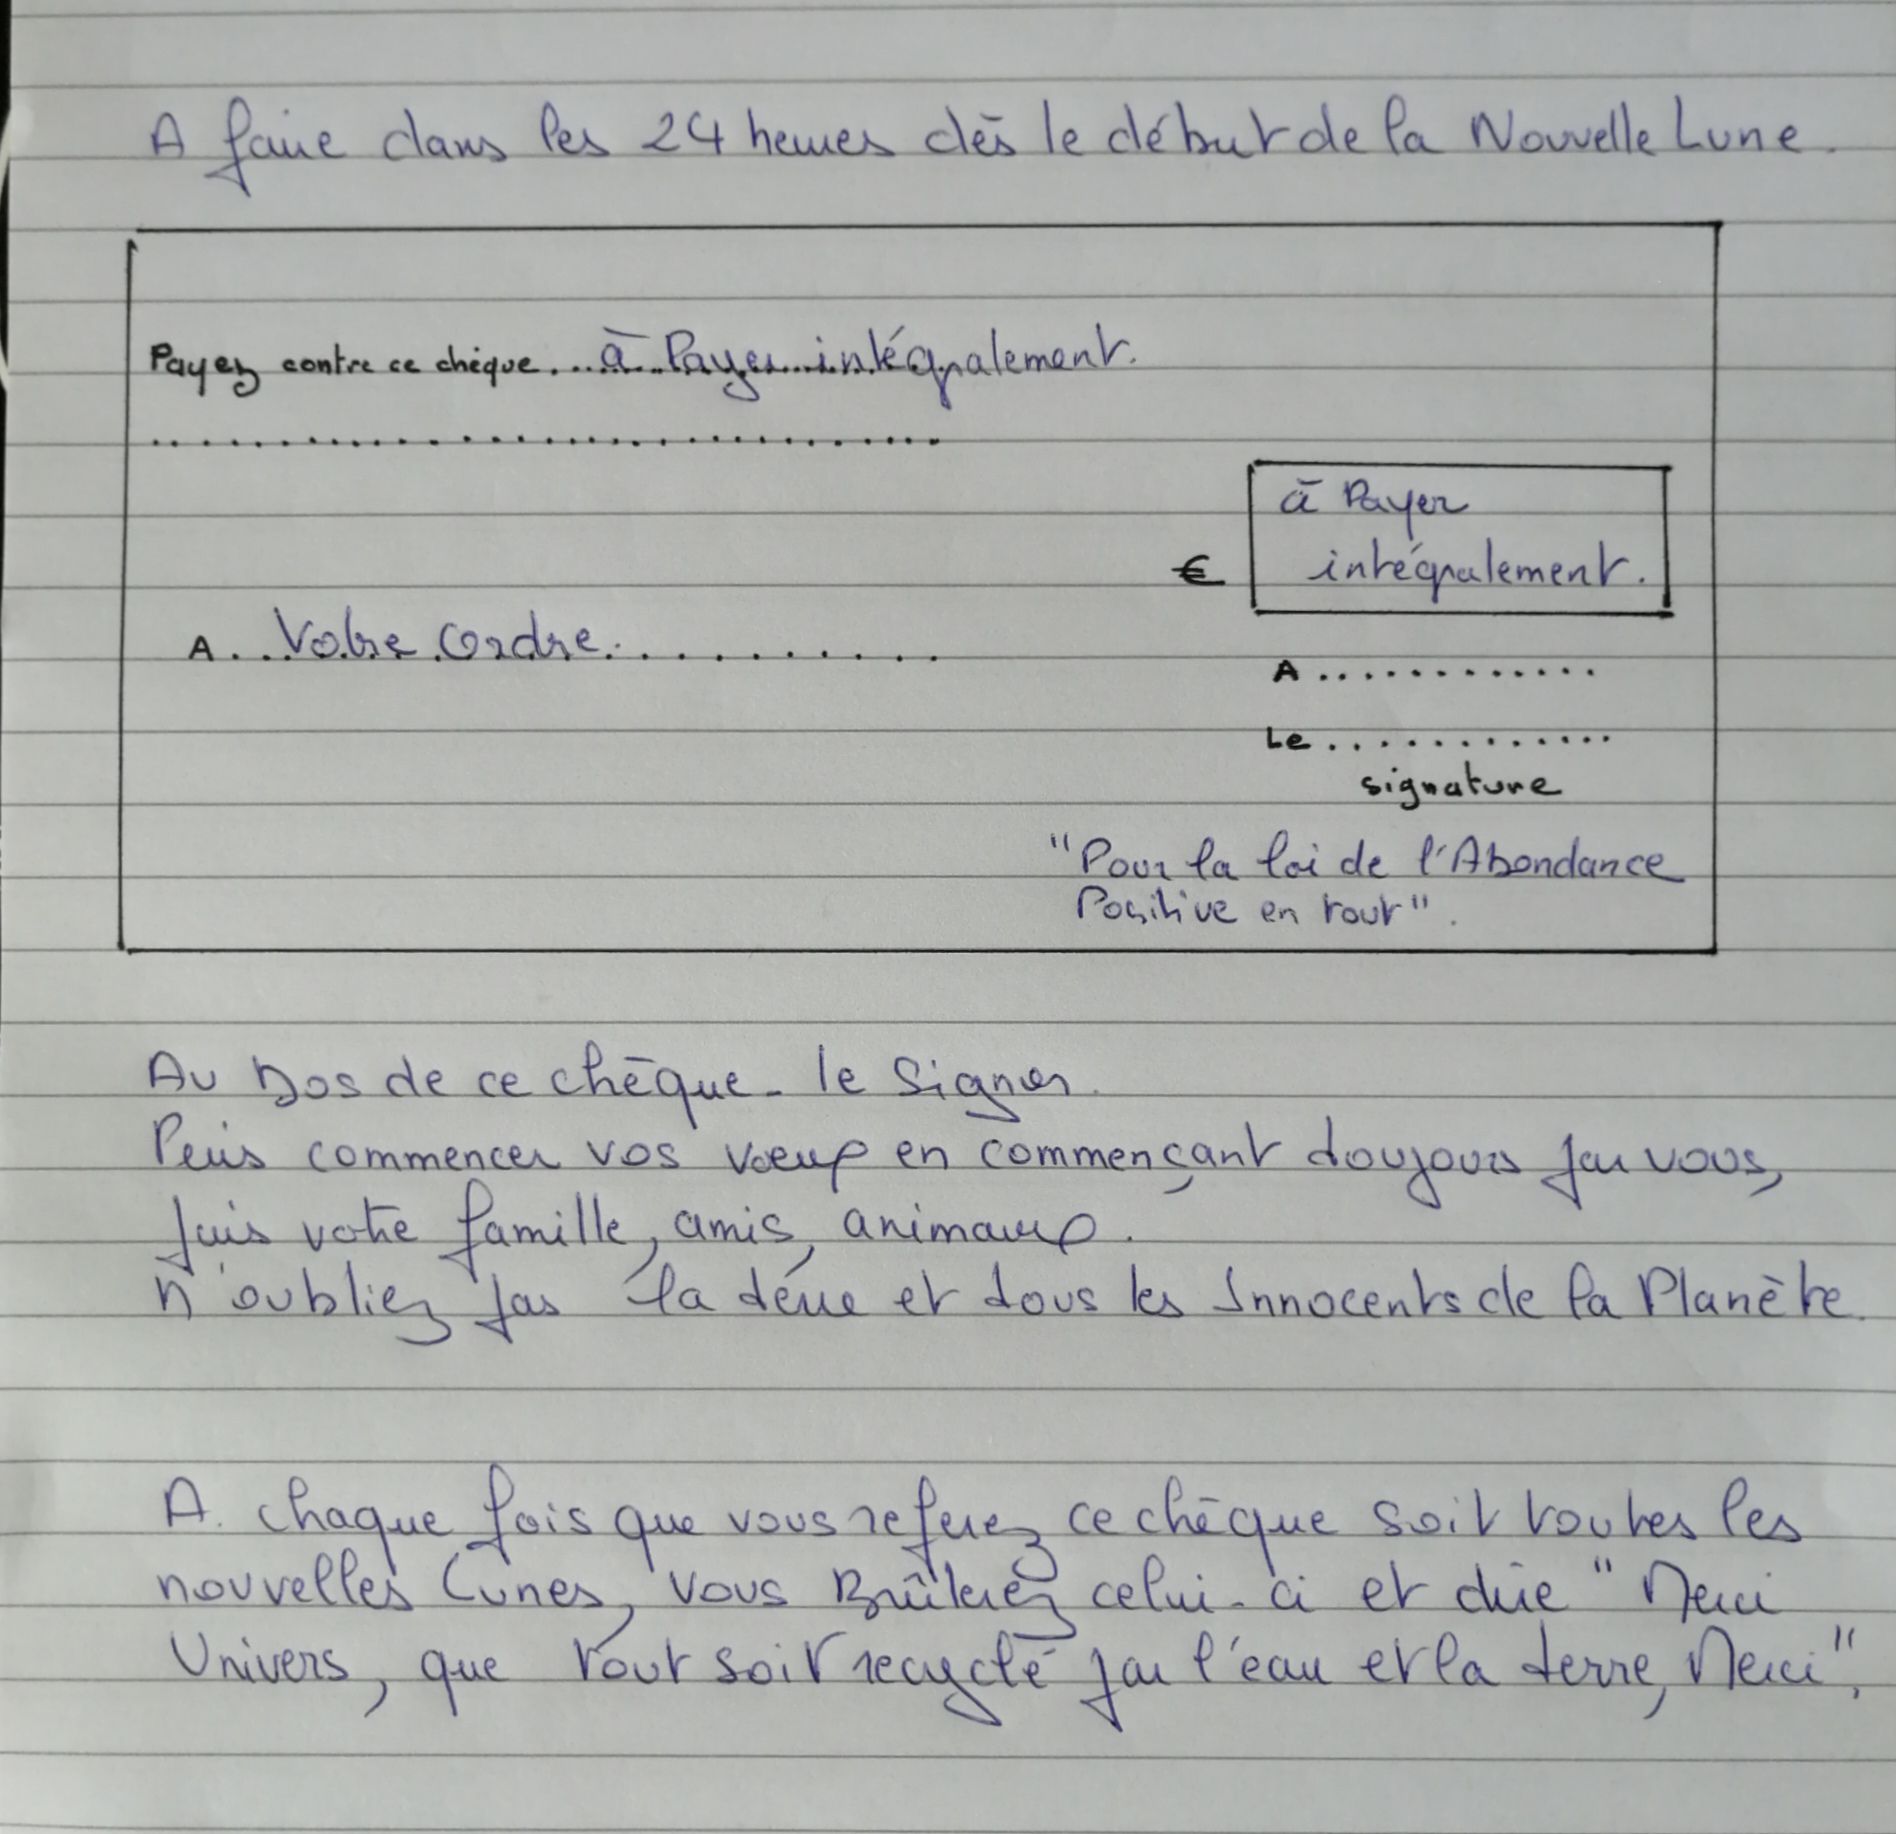 A faire dans les 24 heures dès le début de la Nouvelle Lune.
Payez contre ce chèque....à Payer intégralement.
..............................
à Payer
€ intégralement.
A...Votre Ordre.............
A............
Le.............
signature
"Pour la loi de l'Abondance
Positive en tout".
Au Dos de ce chèque - le signer.
Puis commencer vos vœux en commençant toujours par vous,
puis votre famille, amis, animaux.
N'oubliez pas la terre et tous les Innocents de la Planète.
A chaque fois que vous referez ce chèque soit toutes les
nouvelles Lunes, vous Brûlerez celui-ci et dire "Merci
Univers, que tout soit recyclé par l'eau et la terre, Merci".